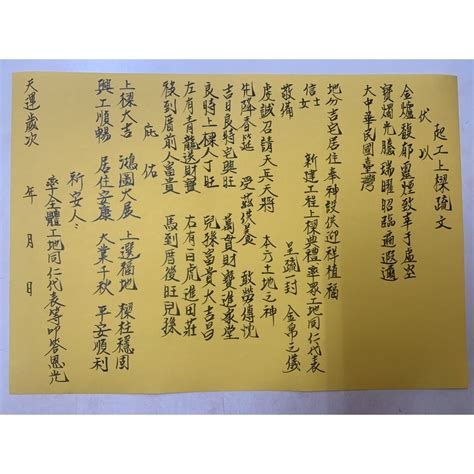 起工上樑疏文
伏以
金爐馥郁 靈煙致奉于虛空
寶燭光騰 瑞曜昭臨通遐邇
大中華民國臺灣
地分吉宅居住奉神設狀迎祥植福
信士女 新建工程上樑典禮率眾工地同仁代表
敬備 呈疏一封 金帛之儀
虔誠召請天兵天將 本方土地之神
先降香筵 受茲供養 敢勞傳沈
吉日良時宅興旺 萬貫財寶進家堂
良時上樑人丁旺 兒孫富貴大吉昌
左有青龍送財寶 右有白虎進田莊
祿到曆前人富貴 馬到曆後旺兒孫
庇佑
上樑大吉 鴻圖大展 上選福地 樑柱穩固
興工順暢 居住安康 大業千秋 平安順利
新安人:
率全體工地同仁代表等叩答恩光
天運歲次 年 月 日